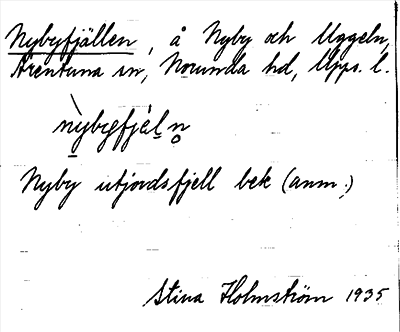 Nybyfjällen, å Nyby och Uggeln,
Ärentuna sn, Norunda hd, Upps. l.
nybyfjäln
Nyby utjordsfjell bek (anm.)
Stina Holmström 1935